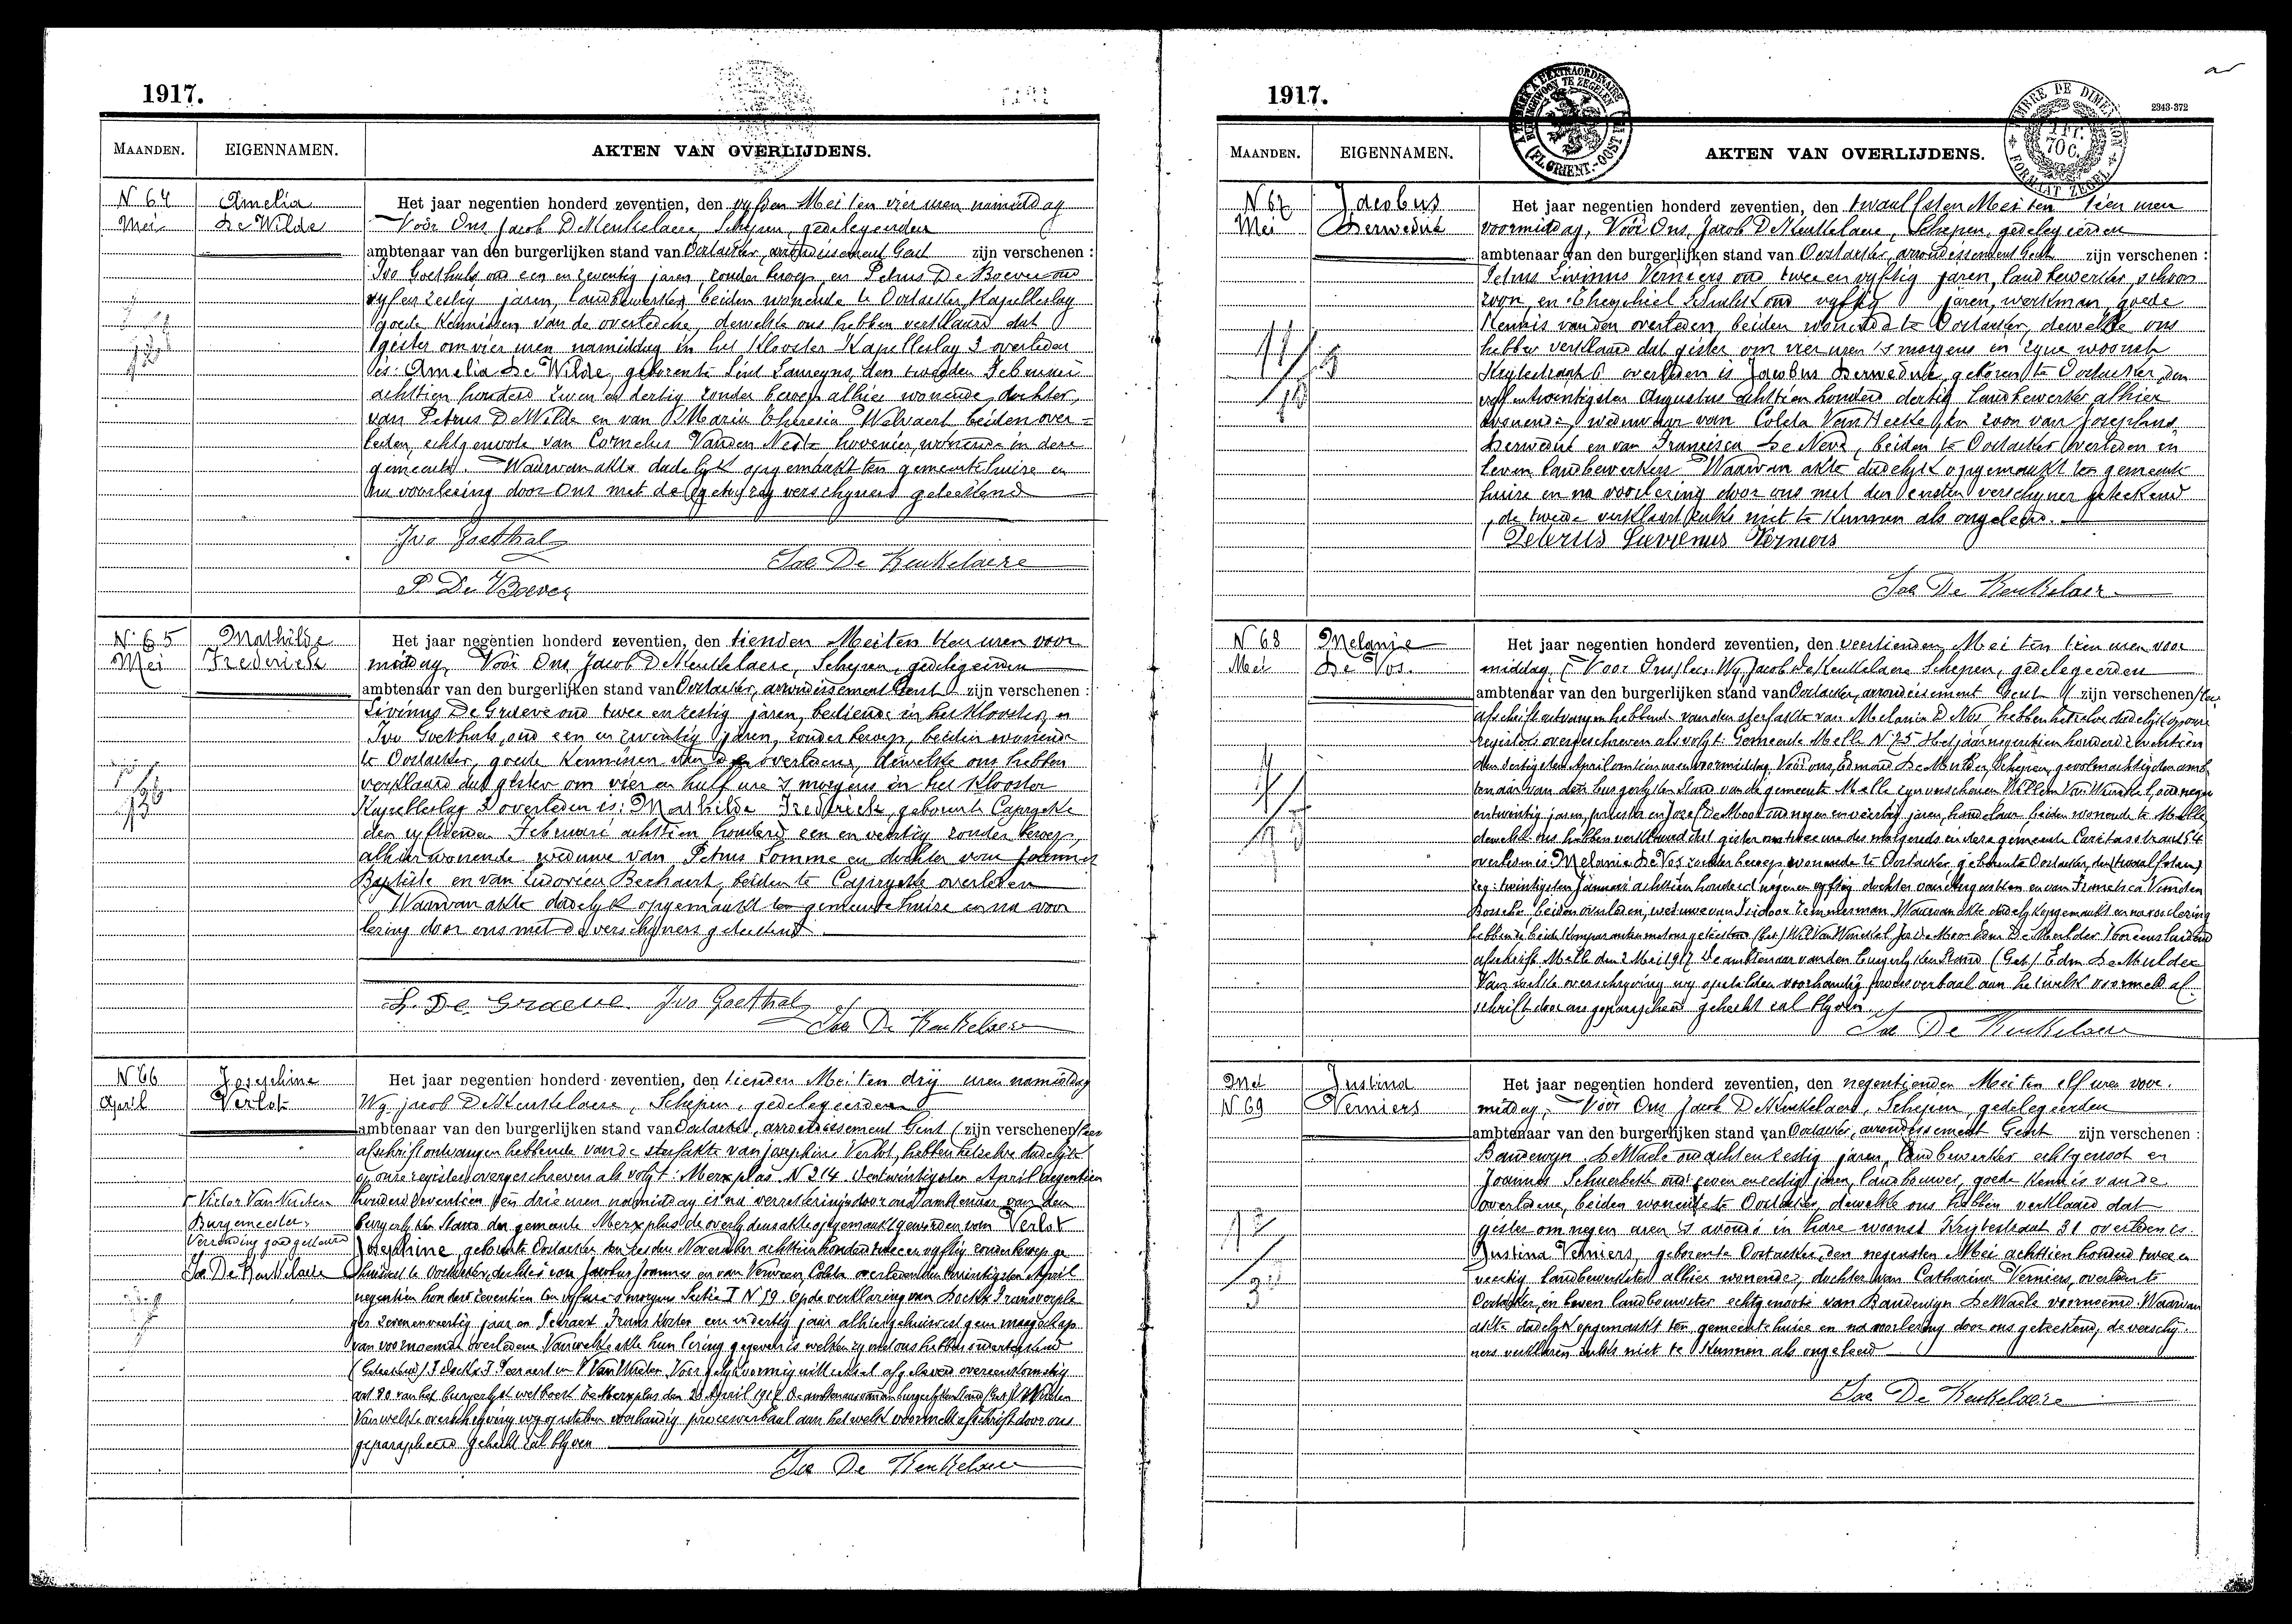 1917.
MAANDEN. EIGENNAMEN. AKTEN VAN OVERLIJDENS.
N 64 Amelia
Mei De Wilde
Het jaar negentien honderd zeventien, den vyfden Mei ten vier uren namiddag
Voor Ons Jacob De Keukelaere, Schepen, gedelegeerden
ambtenaar van den burgerlijken stand van Oostacker, arrondissement Gent zijn verschenen :
Ivo Goethals oud een en zeventig jaren, zonder beroep en Petrus De Boever oud
vyf en zestig jaren, landbewerker, beiden wonende te Oostacker, Kapelleslag
goede kennissen van de overledene, dewelke ons hebben verklaard dat
gister om vier uren namiddag in het Klooster Kapelleslag 3 overleden
is: Amelia De Wilde, geboren te Sint Laureyns, den tweeden Februari
achttien honderd zeven en dertig zonder beroep alhier wonende, dochter
van Petrus De Wilde en van Maria Theresia Welvaert beiden over-
leden, echtgenoote van Cornelus Vanden Neste hovenier, wonende in deze
gemeente. Waarvan akte dadelyk opgemaakt ten gemeentehuize en
na voorlezing door ons met de verschyners geteekend
Ivo Goethals
Jac De Keukelaere
P. De Boever
N 65 Mathilde
Mei Frederick
Het jaar negentien honderd zeventien, den tienden Mei ten tien uren voor
middag, Voor Ons Jacob De Keukelaere, Schepen, gedelegeerden
ambtenaar van den burgerlijken stand van Oostacker, arrondissement Gent zijn verschenen :
Livinus De Graeve oud twee en zestig jaren, bediende in het Klooster en
Ivo Goethals, oud een en zeventig jaren, zonder beroep, beiden wonende
te Oostacker, goede kennissen van de overledene, dewelke ons hebben
verklaard dat gister om vier en half ure 's morgens in het Klooster
Kapelleslag 3 overleden is: Mathilde Frederick, geboren te Caprycke
den vyftienden Februari achttien honderd een en veertig zonder beroep,
alhier wonende weduwe van Petrus Somme en dochter van Joannes
Baptiste en van Ludovica Beghaert, beiden te Caprycke overleden
Waarvan akte dadelyk opgemaakt ten gemeentehuize en na voor
lezing door ons met de verschyners geteekend
L. De Graeve Ivo Goethals
Jac De Keukelaere
N 66 Josephine
April Verlot
Het jaar negentien honderd zeventien, den tienden Mei ten drij uren namiddag
Wy Jacob De Keukelaere, Schepen, gedelegeerden
ambtenaar van den burgerlijken stand van Oostacker, arrondissement Gent zijn verschenen
afschrift ontvangen hebbende van de sterfakte van Josephine Verlot, hebben hetzelve dadelijk
op onze registers overgeschreven als volgt: Merxplas N 214. twintigsten April negentien
honderd zeventien ten drie uren namiddag is na verzekering door ons ambtenaar van den
burgerlyken Stand der gemeente Merxplas de overlydensakte opgemaakt geworden van Verlot
Josephine, geboren te Oostacker den zesden November achttien honderd twee en vyftig zonder beroep ge
huisvest te Oostacker, dochter van Jacobus Joannes en van Verween Coleta overleden den twintigsten April
negentien honderd zeventien ten vyf ure 's morgens Sectie I N 79. Op de verklaring van
van voornoemde overledene Van welke akte hun lezing gegeven is welke zy met ons hebben onderteekend
Victor Van Nueten
Burgemeester
Verzending goedgekeurd
Jac De Keukelaere
Van welke overschryving wy opstellen voorhandig procesverbaal aan hetwelk voormeld afschrift door ons
geparapheerd gehecht zal blyven
Jac De Keukelaere
1917.
2343-372
MAANDEN. EIGENNAMEN. AKTEN VAN OVERLIJDENS.
N 67 Jacobus
Mei Derwedue
Het jaar negentien honderd zeventien, den twaalfsten Mei ten tien uren
voormiddag, Voor Ons, Jacob De Keukelaere, Schepen, gedelegeerden
ambtenaar van den burgerlijken stand van Oostacker, arrondissement Gent zijn verschenen :
Petrus Livinus Verniers oud twee en vyftig jaren, landbewerker, schoon
zoon, en Theophiel oud vyftig jaren, werkman, goede
kennis van den overleden, beiden wonende te Oostacker, dewelke ons
hebben verklaard dat gister om vier uren 's morgens in zyne woonst
6 overleden is Jacobus Derwedue, geboren te Oostacker, den
vyf en twintigsten Augustus achttien honderd dertig landbewerker alhier
wonende weduwaar van Coleta Van Hecke zoon van Josephus
Derwedue en van Francisca De Neve, beiden te Oostacker overleden in
leven landbewerkers Waarvan akte dadelyk opgemaakt ten gemeente
huize en na voorlezing door ons met den eersten verschyner geteekend
de tweede verklaart zulks niet te kunnen als ongeleerd.
Petrus Luvienus Verniers
Jac De Keukelaere
N 68 Melanie
Mei De Vos
Het jaar negentien honderd zeventien, den veertienden Mei ten tien uren voor
middag, Wy, Jacob De Keukelaere Schepen, gedelegeerden
ambtenaar van den burgerlijken stand van Oostacker, arrondissement Gent zijn verschenen
afschrift ontvangen hebbende van den sterfakte van Melanie De Vos, hebben hetzelve dadelijk op onze
registers overgeschreven als volgt: Gemeente Melle N 75 Het jaar negentien honderd zeventien
den dertigsten April om tien uren voormiddag Voor ons, Edmond De Mulder, Schepen, gevolmachtigden amb
tenaar van den burgerlyken Stand van de gemeente Melle zyn verschenen Willem Van Winckel, oud negen
entwintig jaren, priester en Jozef De Moor oud negen en veertig jaren, handelaar beiden wonende te Melle
dewelke ons hebben verklaard dat gister om twee ure des morgends in deze gemeente Caritasstraat 54
overleden is Melanie De Vos zonder beroep wonende te Oostacker geboren te Oostacker, den (twaalfsten)
zeg: twintigsten Januari achttien honderd negen en vyftig dochter van Augustien en van Francisca Vanden
Bossche, beiden overleden, weduwe van Isidoor Temmerman. Waarvan akte dadelyk opgemaakt en na voorlezing
afschrift Melle den 2 Mei 1917 De ambtenaar van den burgerlyken Stand (Get) Edm. De Mulder
Van welke overschryving wy opstellen voorhandig procesverbaal aan hetwelk voormeld af
schrift door ons geparapheerd gehecht zal blyven.
Jac De Keukelaere
Mei Justina
N 69 Verniers
Het jaar negentien honderd zeventien, den negentienden Mei ten elf uren voor.
middag, Voor Ons Jacob De Keukelaere, Schepen, gedelegeerden
ambtenaar van den burgerlijken stand van Oostacker, arrondissement Gent zijn verschenen :
Baudewyn De Waele oud acht en zestig jaren, landbewerker echtgenoot en
Joannes Schuerbeke oud zeven en zestig jaren, landbouwer, goede kennis van de
overledene, beiden wonende te Oostacker, dewelke ons hebben verklaard dat
gister om negen uren 's avonds in hare woonst Krijtestraat 31 overleden is
Justina Verniers, geboren te Oostacker, den negensten Mei achttien honderd twee en
veertig landbewerkster alhier wonende, dochter van Catharina Verniers, overleden te
Oostacker, in leven landbouwster echtgenoote van Baudewyn De Waele voornoemd. Waarvan
akte dadelyk opgemaakt ten gemeentehuize en na voorlezing door ons geteekend, de verschy-
ners verklaren zulks niet te kunnen als ongeleerd
Jac De Keukelaere